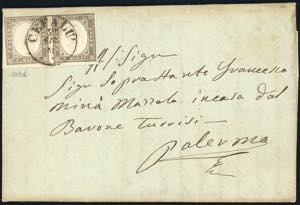 CEFALU'
All Sigr
Sigr Soprastante Francesco
Minà Mazzola in casa dal
Barone Turrisi
Palermo